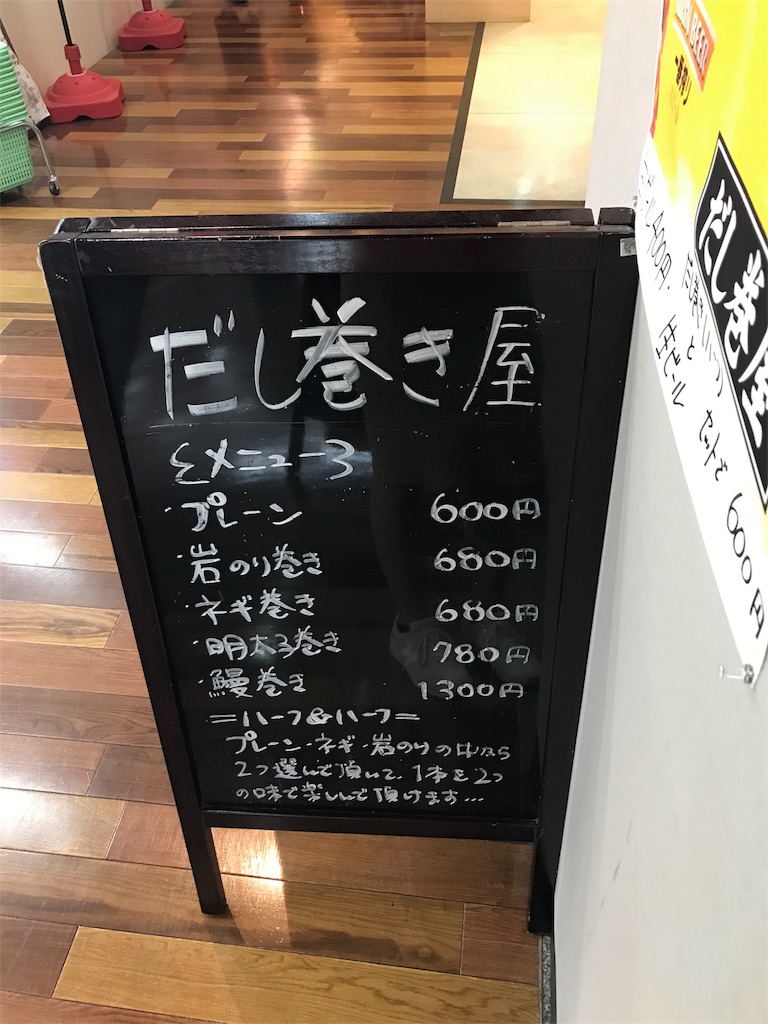 だし巻き屋
ミメニュー3
・プレーン 600円
・岩のり巻き 680円
・ネギ巻き 680円
・明太子巻き 780円
・鰻巻き 1300円
=ハーフ&ハーフ=
プレーン・ネギ・岩のりの中から
2つ選んで頂いて、1本を2つ
の味で楽しんで頂けます…
だし巻き屋
400円.
と
生ビール
セットで 600円